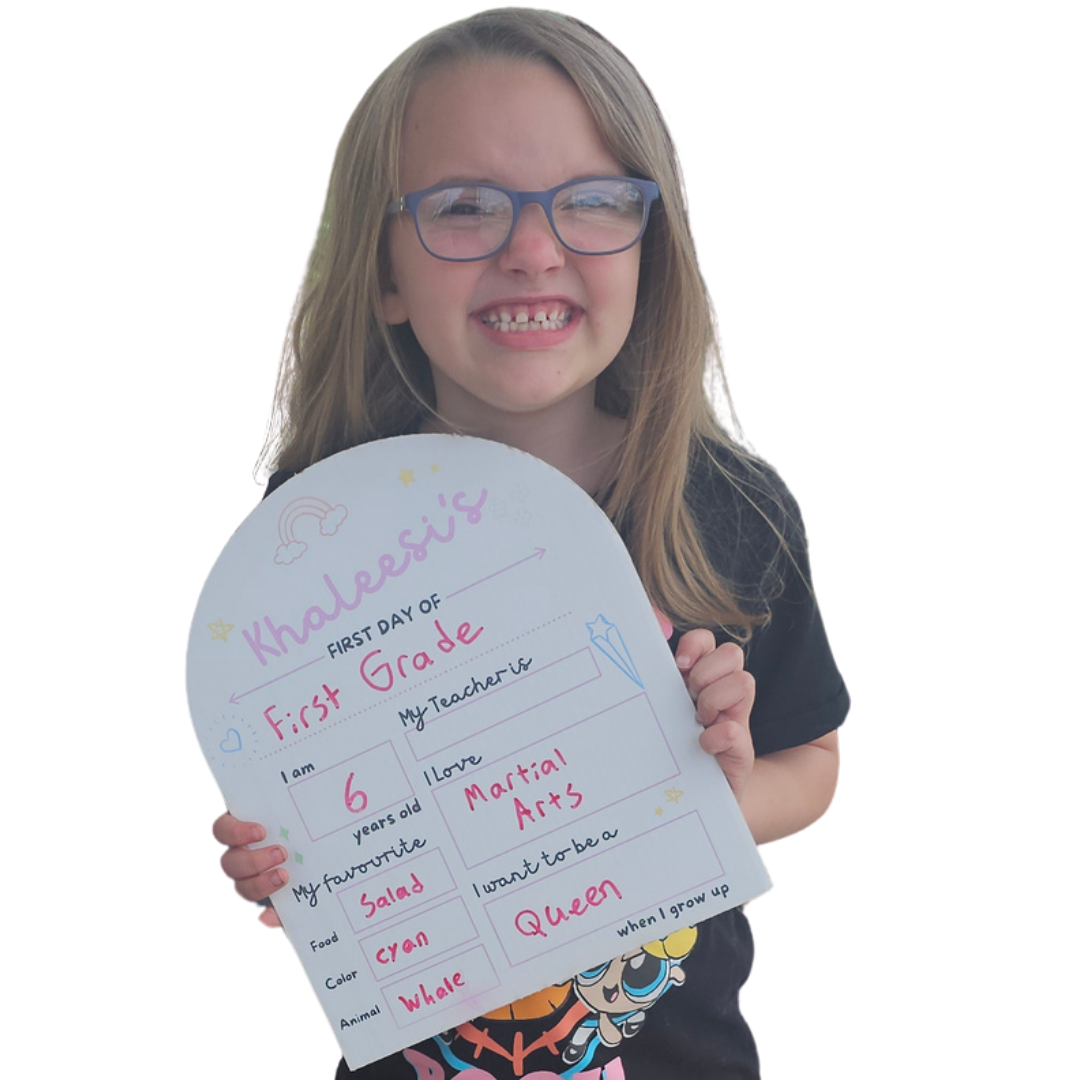 Khaleesi's
FIRST DAY OF
First Grade
My Teacher is
I am
6
years old
I Love
Martial
Arts
My favourite
Food
Salad
Color
cyan
Animal
Whale
I want to be a
Queen
when I grow up